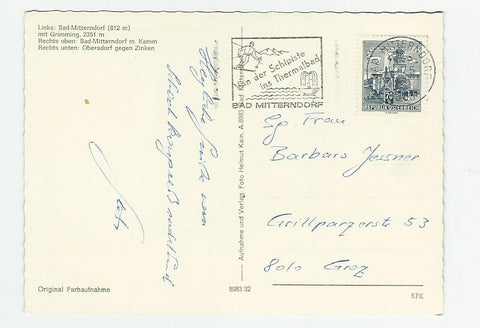 Links: Bad-Mitterndorf (812 m)
mit Grimming, 2351 m
Rechts oben: Bad-Mitterndorf m. Kamm
Rechts unten: Obersdorf gegen Zinken
Von der Schipiste
ins Thermalbad
BAD MITTERNDORF
MITTERNDORF
REPUBLIK ÖSTERREICH
Frau
Barbara Jessner
Grillparzerstr 53
8010 Graz
Herzliche Grüße vom
Aufnahme und Verlag: Foto Helmut Kain, A-8983 Bad Mitterndorf
Original Farbaufnahme
8983 32
KFK